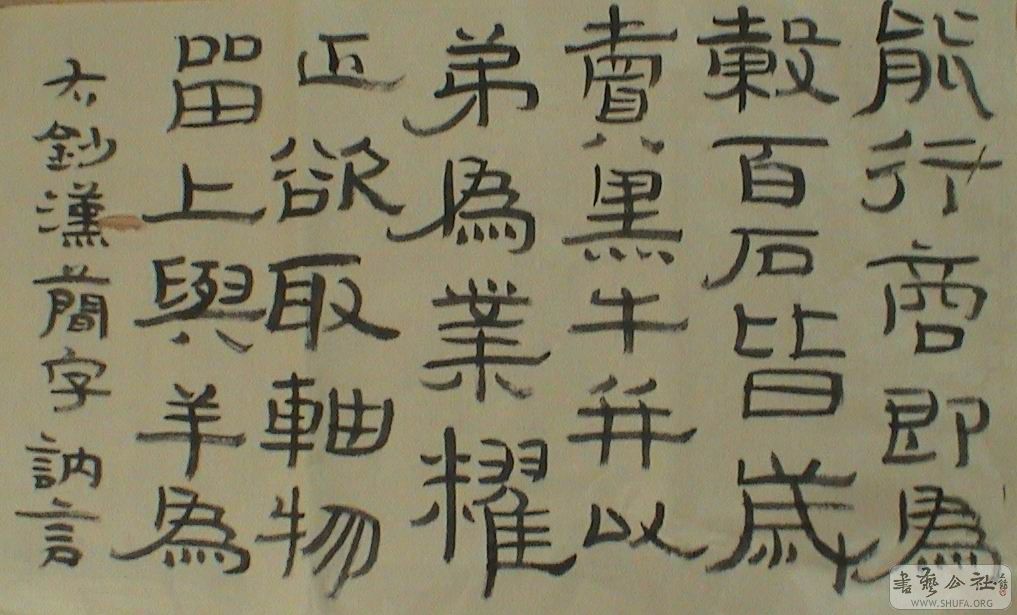 能行商即為
穀百石皆歲
賣黑牛并以
弟為業糴
正欲取軸物
留上與羊為
右鈔漢簡字 訥言
書藝公社
WWW.SHUFA.ORG